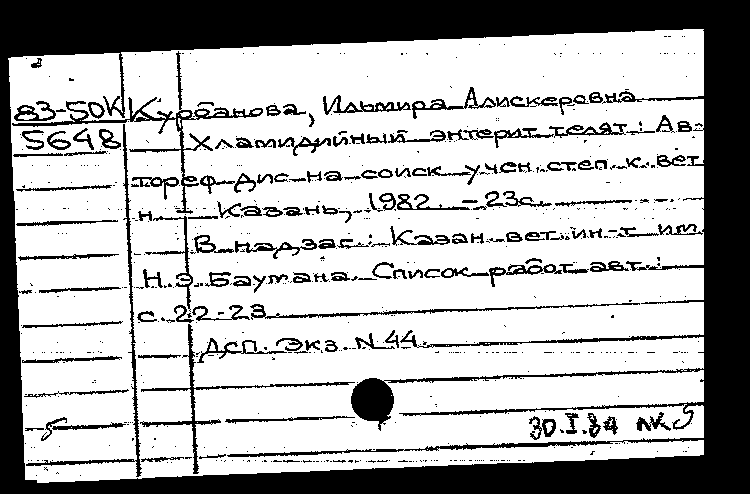 83-50К Курбанова, Ильмира Алискеровна
5648 Хламидийный энтерит телят: Ав-
тореф дис на соиск учен. степ. к. вет.
н. - Казань, 1982. - 23с.
В надзаг.: Казан. вет. ин-т им.
Н.Э. Баумана. Список работ авт.:
с. 22-23.
Дсп. Экз. N 44.
30.I.84